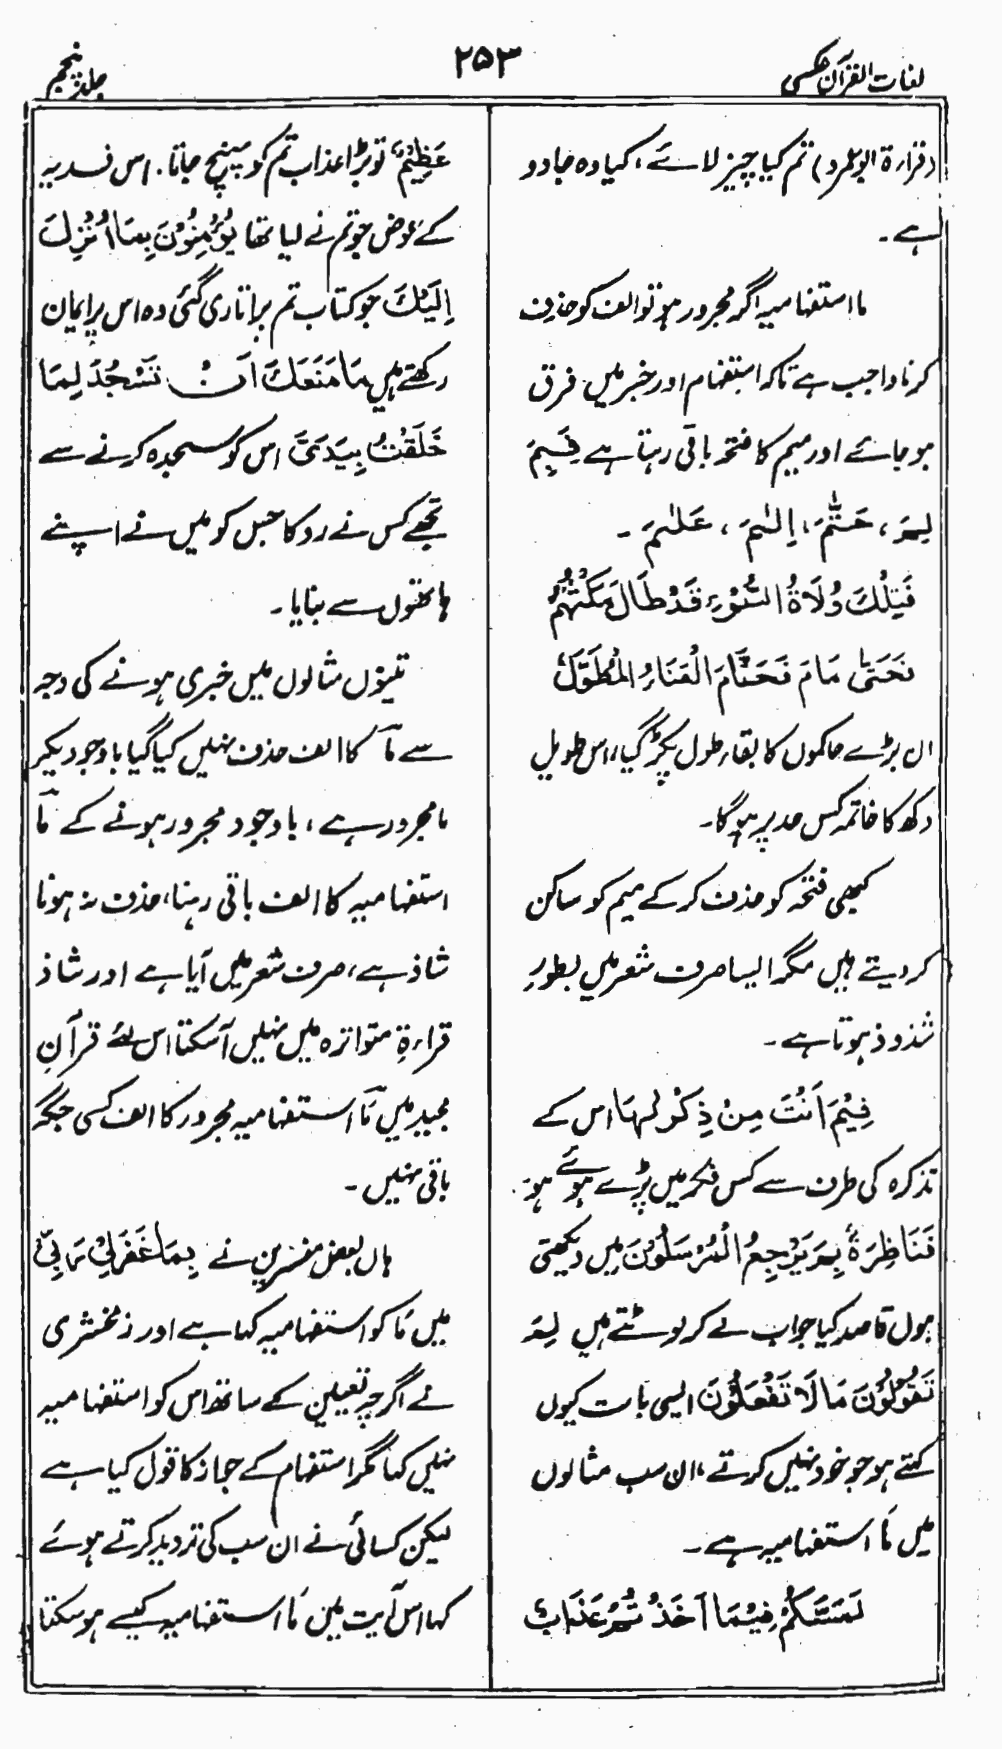 لغات القرآن عکسی
۲۵۳
جلد پنجم
(قراءۃ ابو عمرو) تم کیا چیز لائے، کیا وہ جادو
ہے۔
ما استفہامیہ اگر مجرور ہو تو الف کو حذف
کرنا واجب ہے تاکہ استفہام اور خبر میں فرق
ہو جائے اور میم کا فتحہ باقی رہتا ہے فِیْمَ
لِمَ، حَتّٰمَ، اِلٰمَ، عَلٰمَ۔
فَتِلْكَ وُلَاةُ السُّوْءِ قَدْ طَالَ مَكْثُهُمْ
فَحَتّٰى مَامَ فَحَتَّامَ الْعَنَاءُ الْمُطَوَّلُ
ان بڑے حاکموں کا بقاء طول پکڑ گیا، اس طویل
دکھ کا خاتمہ کس حد پر ہوگا۔
کبھی فتحہ کو حذف کرکے میم کو ساکن
کر دیتے ہیں مگر ایسا صرف شعر میں بطورِ
شذوذ ہوتا ہے۔
فِیْمَ اَنْتَ مِنْ ذِكْرٰىهَا اس کے
تذکرہ کی طرف سے کس فکر میں پڑے ہوئے ہو۔
فَنَاظِرَةٌۢ بِمَ یَرْجِعُ الْمُرْسَلُوْنَ میں دیکھتی
ہوں قاصد کیا جواب لے کر لوٹتے ہیں لِمَ
تَقُوْلُوْنَ مَا لَا تَفْعَلُوْنَ ایسی بات کیوں
کہتے ہو جو خود نہیں کرتے، ان سب مثالوں
میں مَا استفہامیہ ہے۔
لَمَسَّكُمْ فِیْمَا اَخَذْتُمْ عَذَابٌ
عَظِیْمٌ تو بڑا عذاب تم کو پہنچ جاتا۔ اس فدیہ
کے عوض جو تم نے لیا تھا یُؤْمِنُوْنَ بِمَا اُنْزِلَ
اِلَیْكَ جو کتاب تم پر اتاری گئی وہ اس پر ایمان
رکھتے ہیں مَا مَنَعَكَ اَنْ تَسْجُدَ لِمَا
خَلَقْتُ بِیَدَیَّ اس کو سجدہ کرنے سے
تجھے کس نے روکا جس کو میں نے اپنے
ہاتھوں سے بنایا۔
تینوں مثالوں میں خبری ہونے کی وجہ
سے مَا کا الف حذف نہیں کیا گیا باوجودیکہ
ما مجرور ہے، باوجود مجرور ہونے کے مَا
استفہامیہ کا الف باقی رہنا، حذف نہ ہونا
شاذ ہے، صرف شعر میں آیا ہے اور شاذ
قراءۃِ متواترہ میں نہیں آسکتا اس لئے قرآنِ
مجید میں مَا استفہامیہ مجرور کا الف کسی جگہ
باقی نہیں۔
ہاں بعض مفسرین نے بِمَا غَفَرَ لِیْ رَبِّیْ
میں مَا کو استفہامیہ کہا ہے اور زمخشری
نے اگرچہ تعیین کے ساتھ اس کو استفہامیہ
نہیں کہا مگر استفہام کے جواز کا قول کیا ہے
لیکن کسائی نے ان سب کی تردید کرتے ہوئے
کہا اس آیت میں مَا استفہامیہ کیسے ہو سکتا